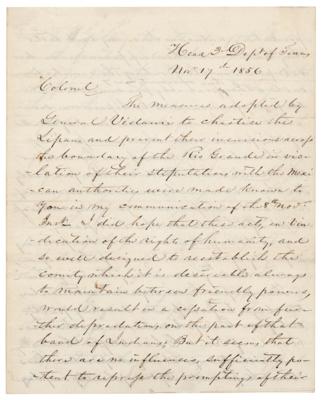 Head Qrs Dept of Texas
Nov. 17th 1856
Colonel
The measures adopted by
General Vidaurri to chastise the
Lipans and prevent their incursions across
the boundary of the Rio Grande in vio-
lation of their stipulations with the Mexi-
can authorities were made known to
you in my communication of the 8th Nov.
Inst. I did hope that these acts, in vin-
dication of the rights of humanity, and
so well designed to reestablish the
comity which it is desirable always
to maintain between friendly powers,
would result in a cessation from fur-
ther depredations on the part of that
band of Indians; But it seems that
there are no influences, sufficiently po-
tent to repress the promptings of their